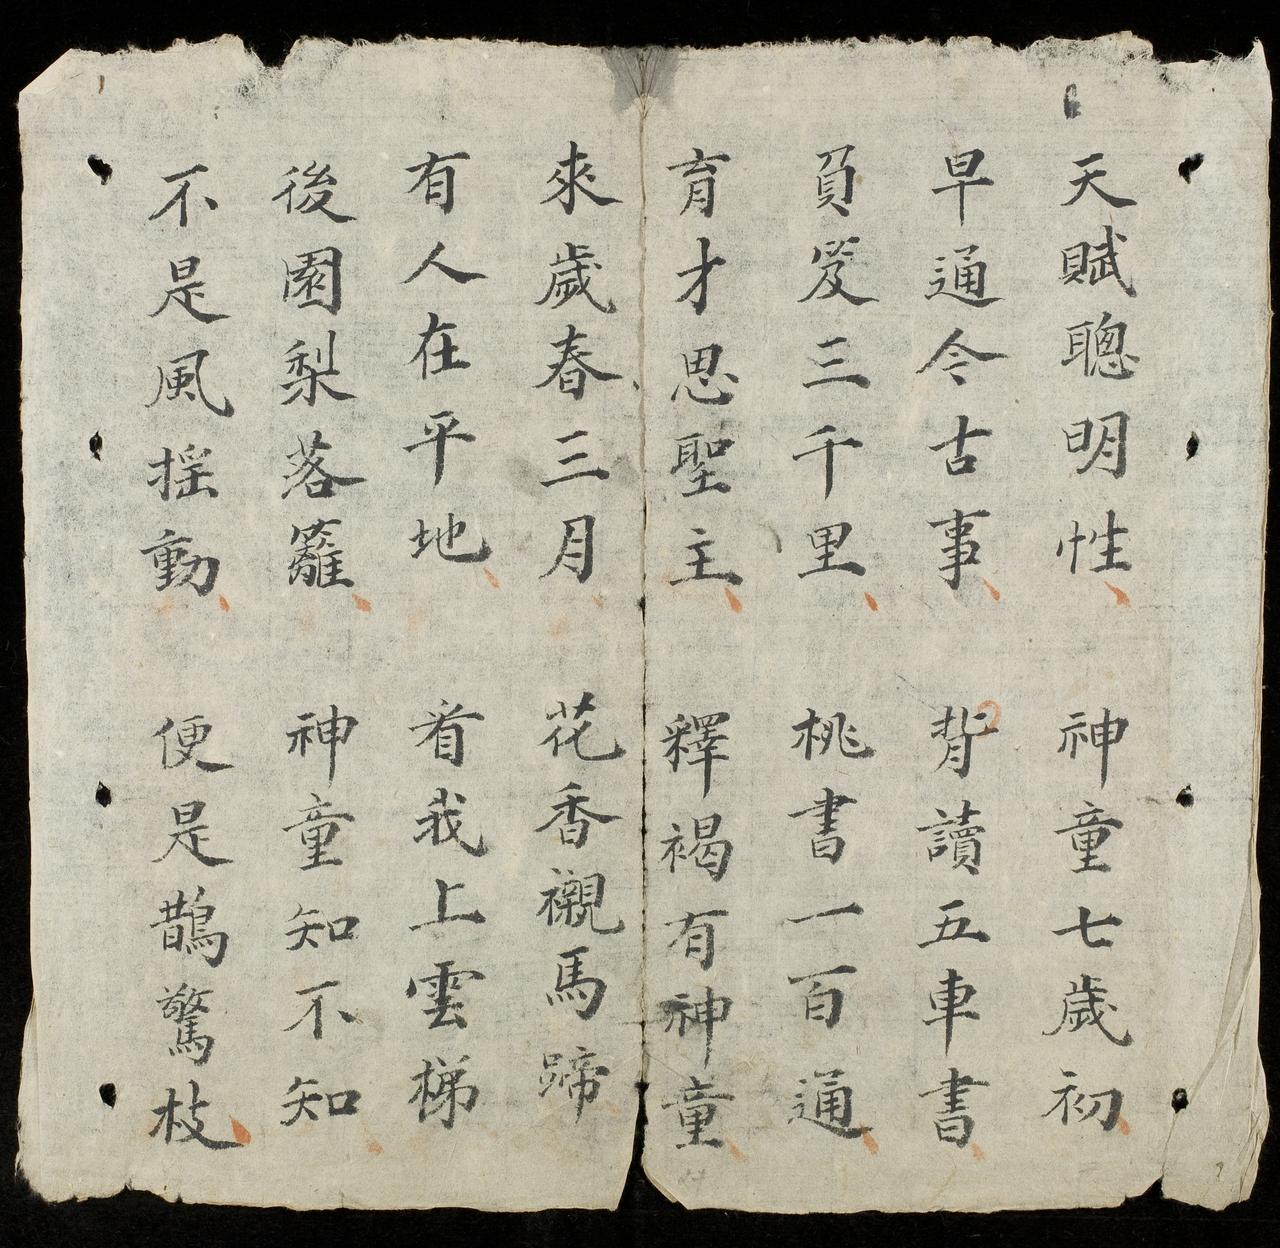 天賦聰明性 神童七歲初
早通今古事 背讀五車書
負笈三千里 桃書一百通
育才思聖主 釋褐有神童
來歲春三月 花香襯馬蹄
有人在平地 看我上雲梯
後園梨落籬 神童知不知
不是風搖動 便是鵲驚枝